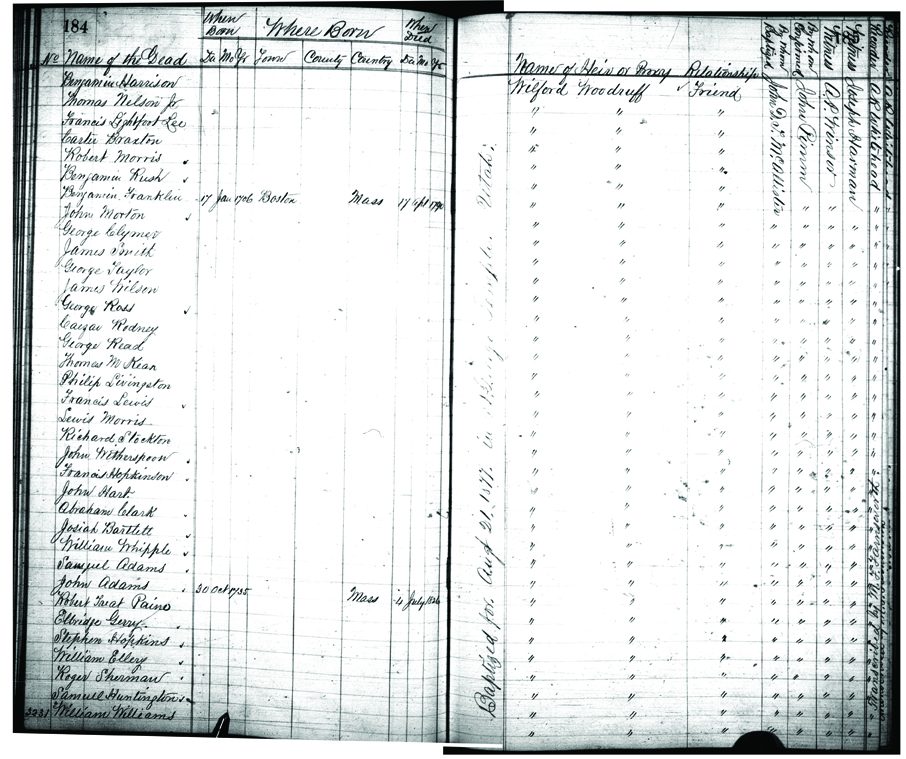 184
When Born Where Born When Died
No Name of the Dead Da Mo Yr Town County Country Da Mo Yr
Benjamin Harrison
Thomas Nelson Jr
Francis Lightfoot Lee
Carter Braxton
Robert Morris
Benjamin Rush
Benjamin Franklin 17 Jan 1706 Boston Mass 17 Apl 1790
John Morton
George Clymer
James Smith
George Taylor
James Wilson
George Ross
Caezar Rodney
George Read
Thomas McKean
Philip Livingston
Francis Lewis
Lewis Morris
Richard Stockton
John Witherspoon
Francis Hopkinson
John Hart
Abraham Clark
Josiah Bartlett
William Whipple
Samuel Adams
John Adams 30 Oct 1735 Mass 4 July 1826
Robert Treat Paine
Elbridge Gerry
Stephen Hopkins
William Ellery
Roger Sherman
Samuel Huntington
3231 William Williams
Name of Heir or Proxy Relationship
Wilford Woodruff Friend
Baptized for Augt 21. 1877. in St George Temple. Utah:
By whom Baptized John D. T. McAllister
By whom
John Pimm
Witness
Witness Joseph Horman
Transcribed by M. F. Farnsworth